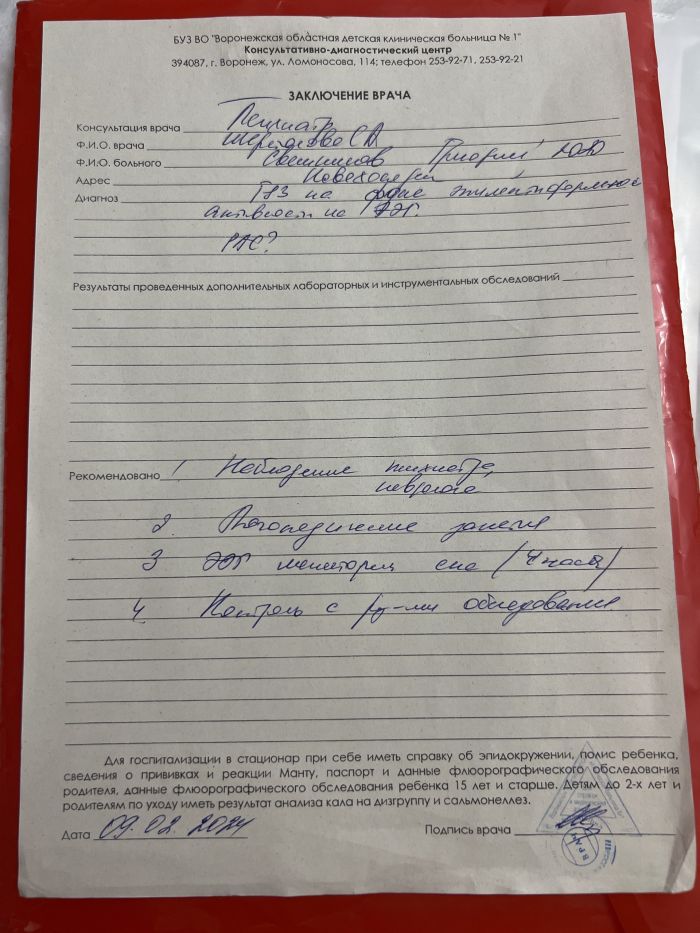 БУЗ ВО "Воронежская областная детская клиническая больница № 1"
Консультативно-диагностический центр
394087, г. Воронеж, ул. Ломоносова, 114; телефон 253-92-71, 253-92-21
ЗАКЛЮЧЕНИЕ ВРАЧА
Консультация врача Психиатр
Ф.И.О. врача
Ф.И.О. больного
Адрес
Диагноз на фоне эпилептиформной
активности на ЭЭГ.
РАС?
Результаты проведенных дополнительных лабораторных и инструментальных обследований
Рекомендовано 1 Наблюдение психиатра,
невролога
2. Логопедические занятия
3 ЭЭГ мониторинг сна (4 часа)
4. Контроль с рез-ми обследования
Для госпитализации в стационар при себе иметь справку об эпидокружении, полис ребенка,
сведения о прививках и реакции Манту, паспорт и данные флюорографического обследования
родителя, данные флюорографического обследования ребенка 15 лет и старше. Детям до 2-х лет и
родителям по уходу иметь результат анализа кала на дизгруппу и сальмонеллез.
Дата 09.02.2024 Подпись врача
ВРАЧ